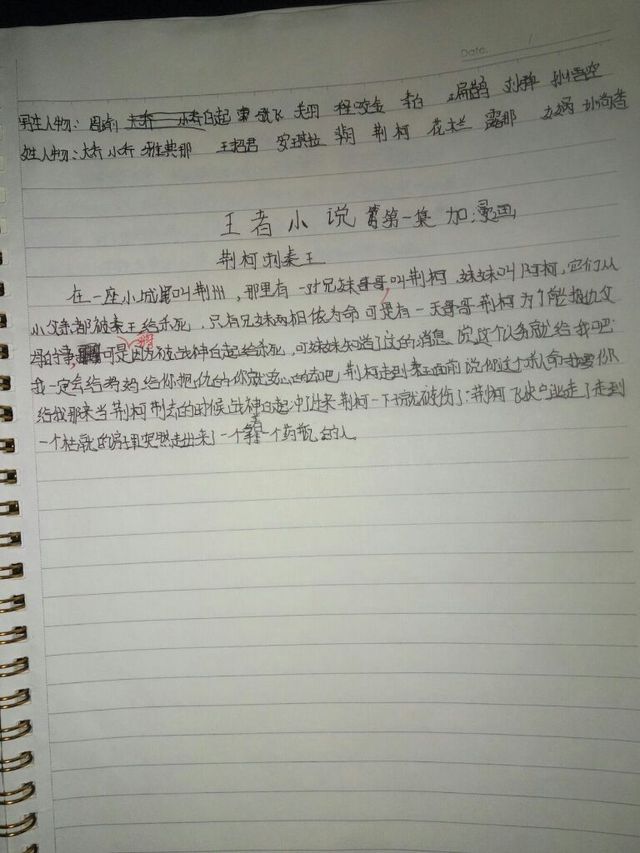 Date. /
男生人物：周瑜 白起 张飞 程咬金 李白 扁鹊 刘禅 孙悟空
姓人物：大乔 小乔 雅典那 王招君 安琪拉 荆柯 花木兰 露那 孙尚香
王者小说 第一集 加漫画
荆柯刺秦王
在一座小城里叫荆州，那里有一对兄妹哥哥叫荆柯 妹妹叫阿柯，它们从
小父亲都被秦王给杀死，只有兄妹两相依为命可是有一天哥哥荆柯为了能报仇父
母的 可是因为被战神白起给杀死，可妹妹知道了这的消息 说这个任务就给我吧
我一定会给 给你把仇的你就 的去吧，荆柯走到秦王面前说你这个 命我要你
给我那来当荆柯刺去的时候战神白起冲了过来荆柯一下就被伤了：荆柯飞 走了走到
一个枯 的 里突然走出来了一个拿一个药瓶 的人